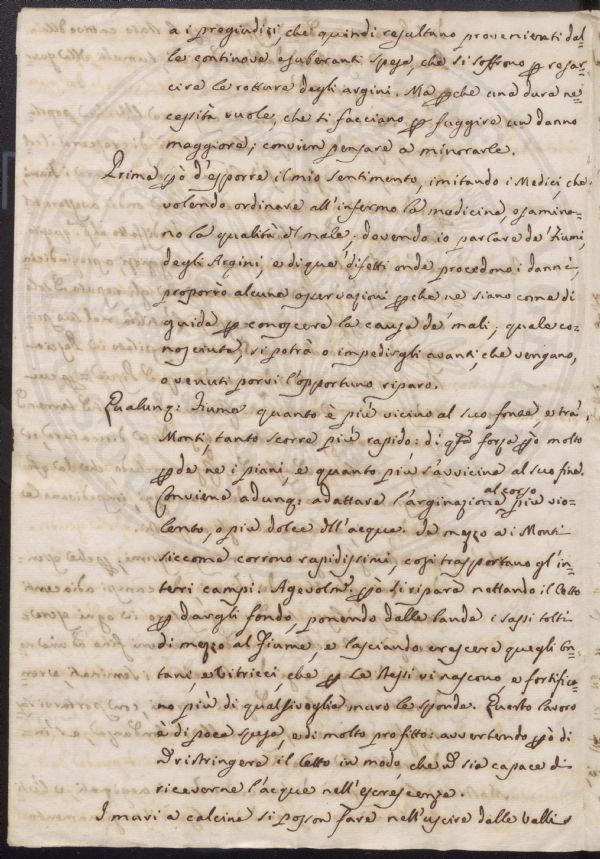 a i pregiudizi, che quindi resultano provenienti dal=
le continove esuberanti spese, che si soffrono p resar=
cire le rotture degli argini. Ma pche una dura ne=
cessità vuole, che si facciano p fuggire un danno
maggiore; convien pensare a minorarle.
Prima pò d'esporre il mio sentimento, imitando i Medici, che
volendo ordinare all'infermo la medicina, esamina=
no la qualità del male; dovendo io parlare de' Fiumi,
degli Argini, e di que' difetti onde procedono i danni,
proporrò alcune osservazioni pche ne siano come di
guida p conoscere la causa de' mali; quale co=
nosciuta, si potrà o impedirgli avanti, che vengano,
o venuti porvi l'opportuno riparo.
Qualunq: Fiume quanto è più vicino al suo fonte, e trà
Monti, tanto scorre più rapido: di qsta forza pò molto
pde ne i piani, e quanto più s'avvicina al suo fine.
Conviene adunq: adattare l'arginazione al corso più vio=
lento, o più dolce dell'acque. In mezzo a i Monti
siccome corrono rapidissimi, così trasportano gl'in=
teri campi. Agevolmte pò si ripara nettando il Letto
p dargli fondo, ponendo dalle bande i sassi tolti
di mezzo al Fiume, e lasciando crescere quegli On=
tani, e Vetricci, che p se stessi vi nascono, e fortifica=
no più di qualsivoglia muro le sponde. Questo lavoro
è di poca spesa, e di molto profitto: avvertendo pò di
n ristringere il Letto in modo, che n sia capace di
riceverne l'acque nell'escrescenze.
I muri a calcina si posson fare nell'uscire dalle valli